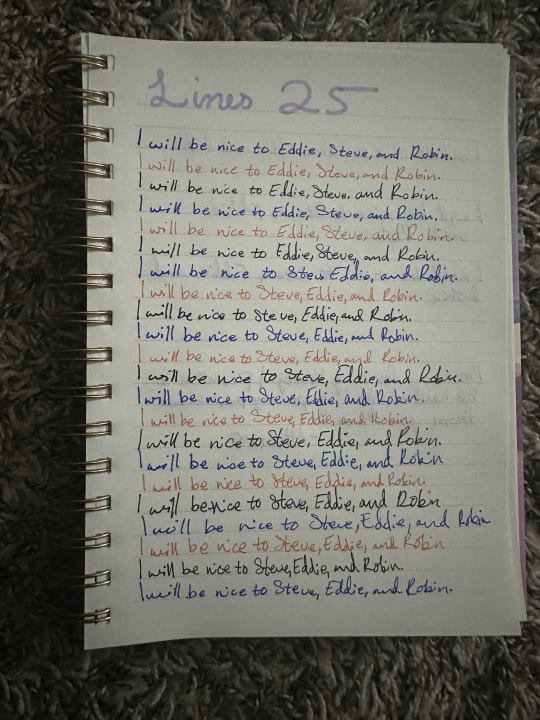 Lines 25
I will be nice to Eddie, Steve, and Robin.
I will be nice to Eddie, Steve, and Robin.
I will be nice to Eddie, Steve, and Robin.
I will be nice to Eddie, Steve, and Robin.
I will be nice to Eddie, Steve, and Robin.
I will be nice to Eddie, Steve, and Robin.
I will be nice to Steve Eddie, and Robin.
I will be nice to Steve, Eddie, and Robin.
I will be nice to Steve, Eddie, and Robin.
I will be nice to Steve, Eddie, and Robin.
I will be nice to Steve, Eddie, and Robin.
I will be nice to Steve, Eddie, and Robin.
I will be nice to Steve, Eddie, and Robin.
I will be nice to Steve, Eddie, and Robin.
I will be nice to Steve, Eddie, and Robin.
I will be nice to Steve, Eddie, and Robin
I will be nice to Steve, Eddie, and Robin.
I will be nice to Steve, Eddie, and Robin
I will be nice to Steve, Eddie, and Robin
I will be nice to Steve, Eddie, and Robin
I will be nice to Steve, Eddie, and Robin.
I will be nice to Steve, Eddie, and Robin.